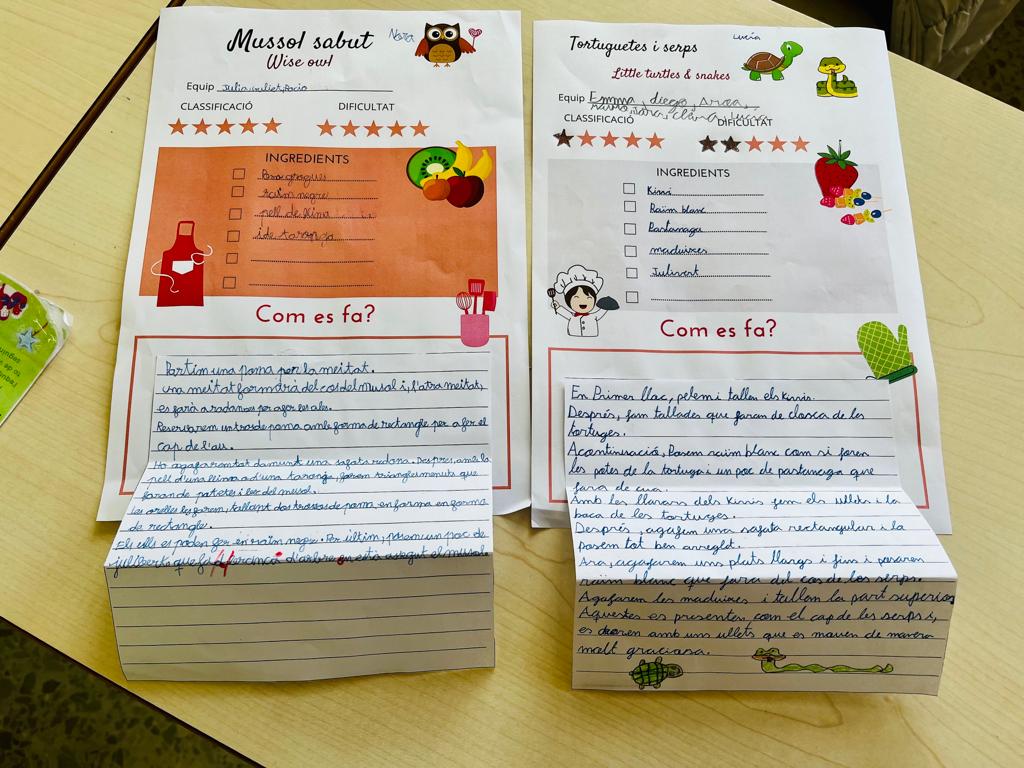 Mussol sabut
Nora
Wise owl
Equip
CLASSIFICACIÓ DIFICULTAT
INGREDIENTS
raïm negre
pell de kima
i de taronja
Com es fa?
Partim una poma per la meitat.
una meitat formarà del cos del musol i, l'atra meitat,
es farà a rodanxes per a fer les ales.
Reservarem un tros de poma amb forma de rectangle per a fer el
cap de l'au.
Ho agafarem tot damunt una safata redona. Despres, amb la
pell d'una llima o d'una taronja, farem triangles menuts que
faran de patetes i bec del musol.
Les orelles les farem, tallant dos trossos de poma en forma en forma
de rectangle.
Els ulls es poden fer en raïm negre. Per últim, posem un poc de
julibert que d'arbre on està assegut el mussol.
Tortuguetes i serps
Lucía
Little turtles & snakes
Equip Emma, diego, Aroa,
CLASSIFICACIÓ DIFICULTAT
INGREDIENTS
Kiwi
Raïm blanc
Pastanaga
maduixes
Julivert
Com es fa?
En Primer lloc, pelem i tallem els kiwis.
Després, fem tallades que faran de closca de les
tortuges.
A continuació, Posem raïm blanc com si foren
les potes de la tortuga i un poc de pastanaga que
fara de cua.
Amb les llavors dels kiwis fem els ullets i la
boca de les tortuges.
Després, agafem una safata rectangular i la
posem tot ben arreglat.
Ara, agafarem uns plats llargs i fins i posarem
raïm blanc que fara del cos de les serps.
Agafarem les maduixes i tallem la part superior
Aquestes es presenten com el cap de les serps i,
es decoren amb uns ullets que es mouen de manera
molt graciosa.